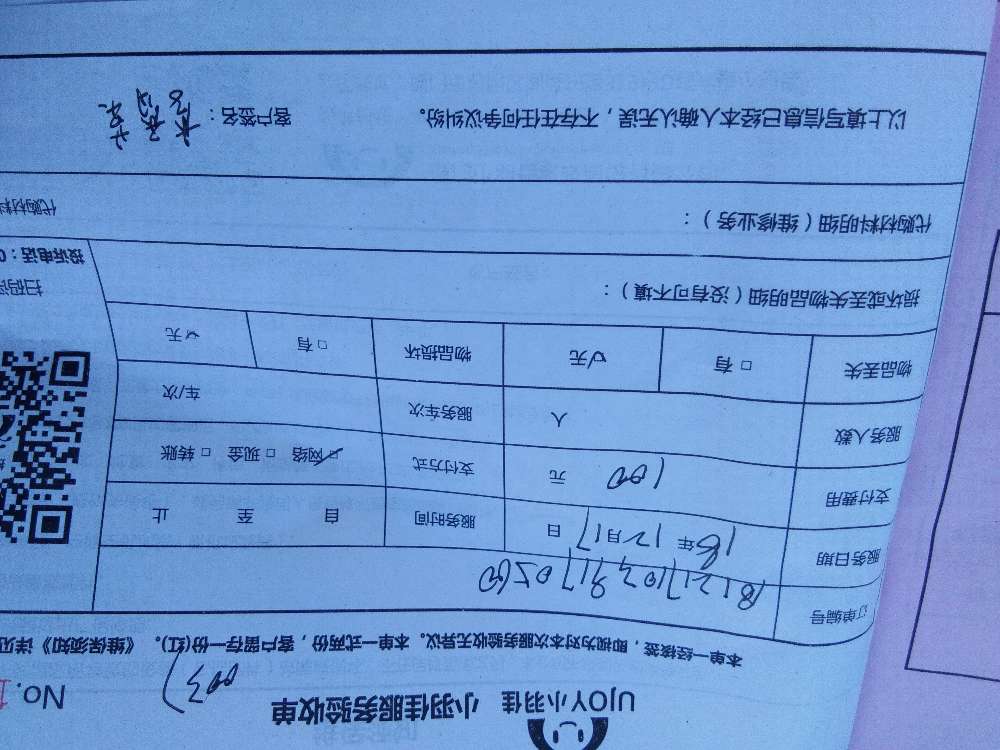 UJOY小羽佳 小羽佳服务验收单
No.
003
本单一经核签，即视为对本次服务验收无异议。本单一式两份，客户留存一份(红)。《维保须知》详见
订单编号
服务日期 18年12月17日 服务时间 自 至 止
支付费用 100 元 支付方式 ☑网络 □现金 □转账
服务人数 人 服务车次 车/次
物品丢失 □有 ☑无 物品损坏 □有 ☑无
损坏或丢失物品明细（没有可不填）：
扫码
投诉电话：0
代购材料明细（维修业务）：
代购材料
以上填写信息已经本人确认无误，不存在任何争议纠纷。 客户签名：